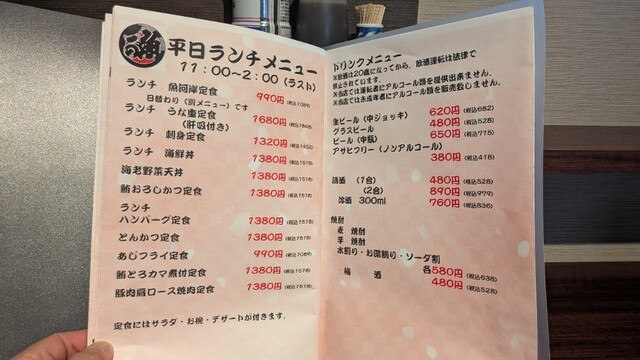 平日ランチメニュー
11:00~2:00(ラスト)
ランチ 魚河岸定食 990円(税込1089)
日替わり(別メニュー)です
ランチ うな重定食 1680円(税込1848)
(肝吸付き)
ランチ 刺身定食 1320円(税込1452)
ランチ 海鮮丼 1380円(税込1518)
海老野菜天丼 1380円(税込1518)
鮪おろしかつ定食 1380円(税込1518)
ランチ
ハンバーグ定食 1380円(税込1518)
とんかつ定食 1380円(税込1518)
あじフライ定食 990円(税込1089)
鮪とろカマ煮付定食 1380円(税込1518)
豚肉肩ロース焼肉定食 1380円(税込1518)
定食にはサラダ・お椀・デザートが付きます.
ドリンクメニュー
※飲酒は20歳になってから。飲酒運転は法律で
禁止されています。
※当店では運転者にアルコール類を提供出来ません。
※当店では未成年者にアルコール類を販売致しません。
生ビール(中ジョッキ) 620円(税込682)
グラスビール 480円(税込528)
ビール(中瓶) 650円(税込715)
アサヒフリー(ノンアルコール)
380円(税込418)
清酒 (1合) 480円(税込528)
(2合) 890円(税込979)
冷酒 300ml 760円(税込836)
焼酎
麦 焼酎
芋 焼酎
水割り・お湯割り・ソーダ割
各580円(税込638)
梅 酒 480円(税込528)